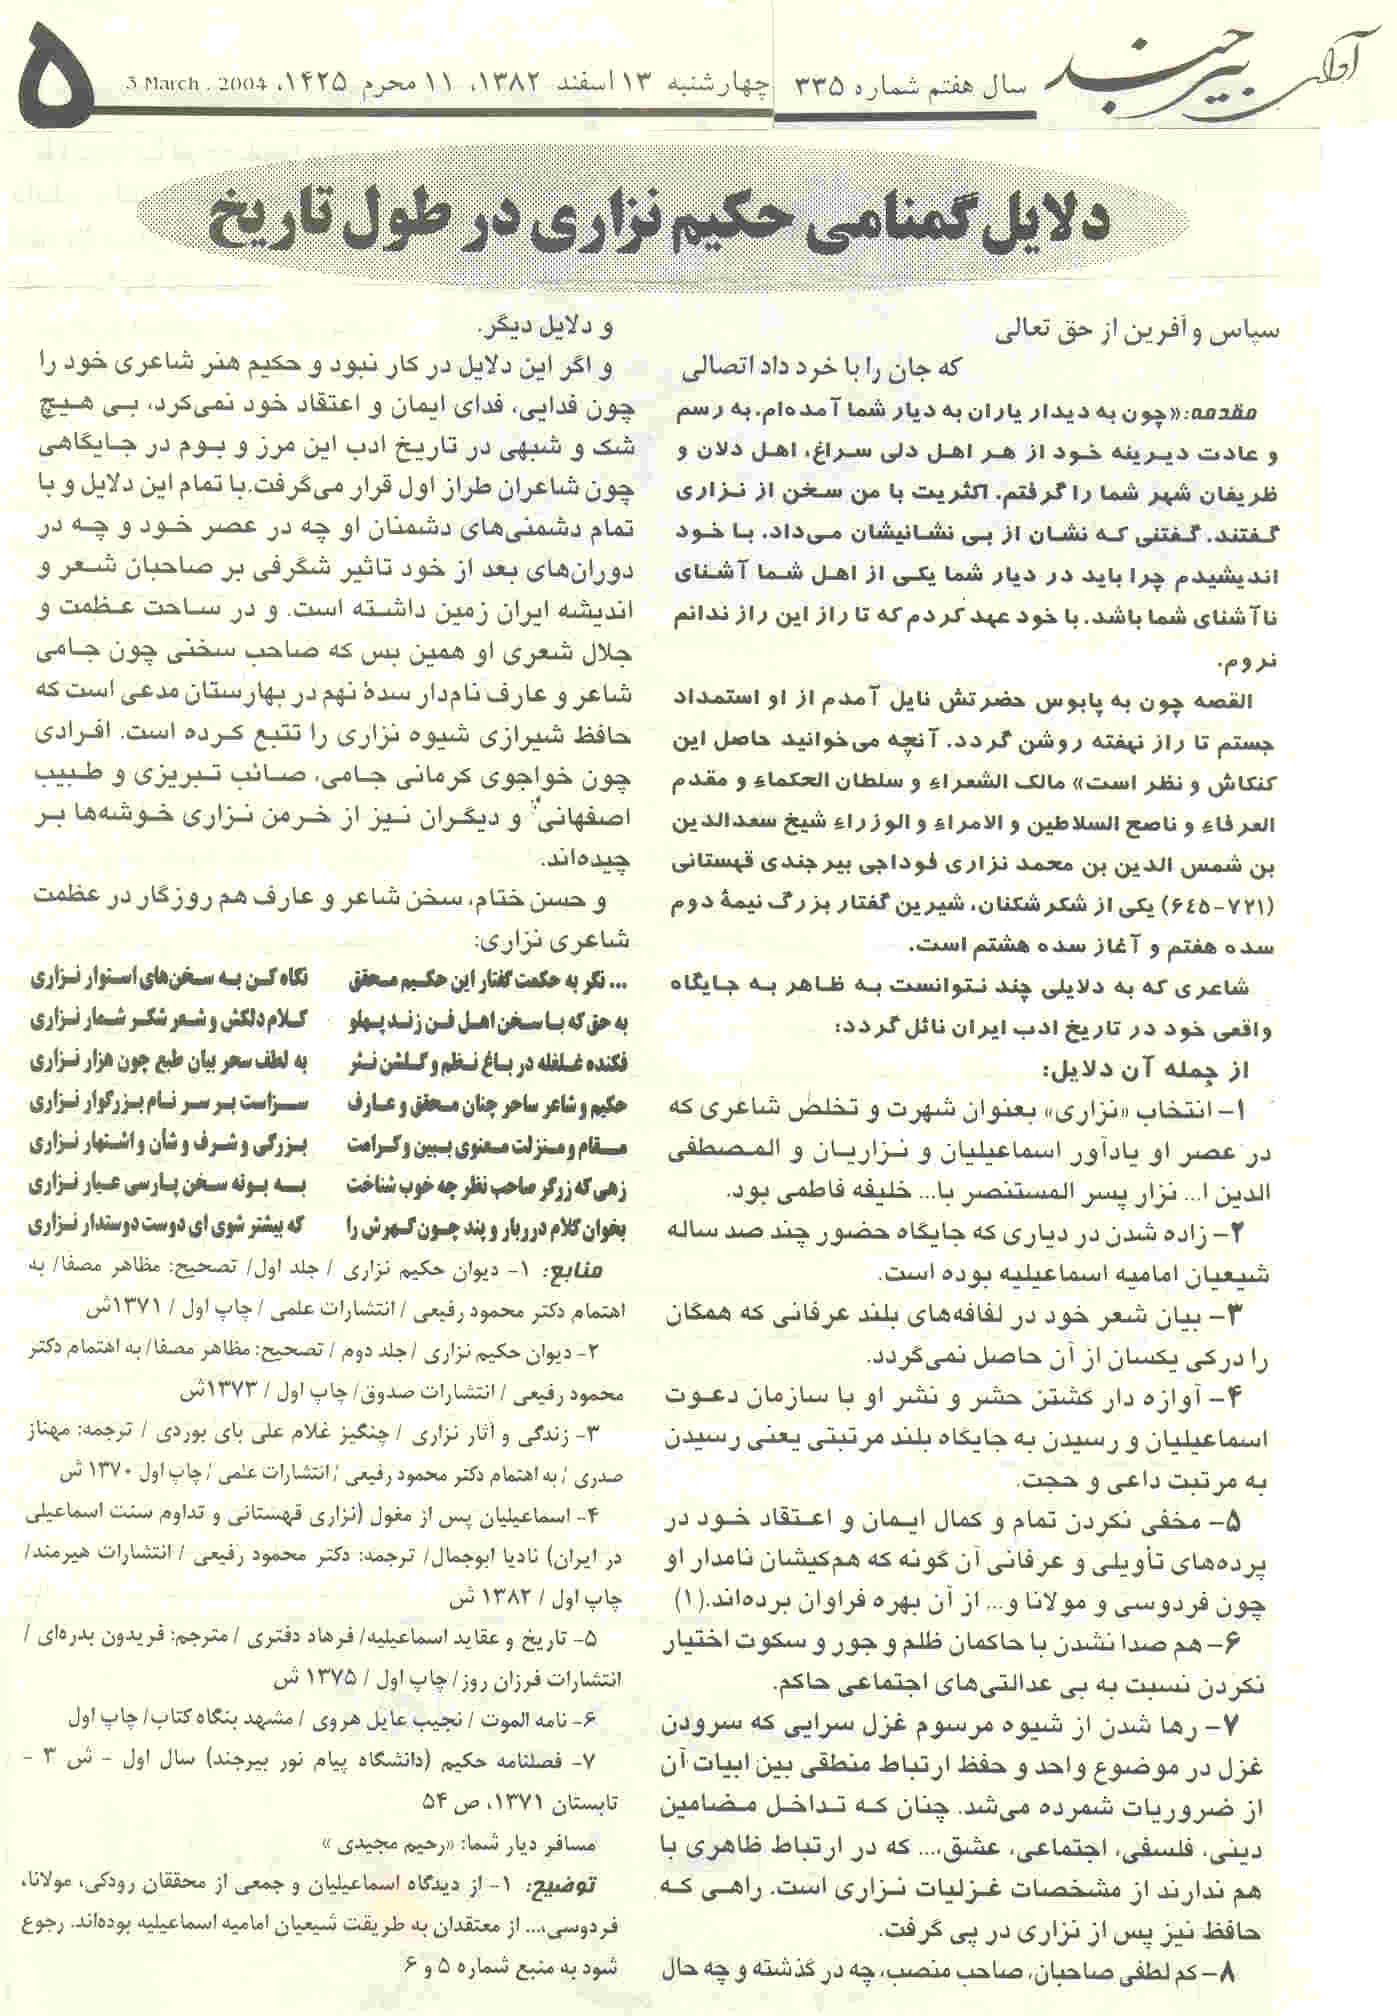 آوای بیرجند
سال هفتم شماره ۳۳۵ چهارشنبه ۱۳ اسفند ۱۳۸۲، ۱۱ محرم ۱۴۲۵، 3 March . 2004
۵
دلایل گمنامی حکیم نزاری در طول تاریخ
سپاس و آفرین از حق تعالی
که جان را با خرد داد اتصالی
مقدمه: «چون به دیدار یاران به دیار شما آمده‌ام. به رسم
و عادت دیرینه خود از هر اهل دلی سراغ، اهل دلان و
ظریفان شهر شما را گرفتم. اکثریت با من سخن از نزاری
گفتند. گفتنی که نشان از بی نشانیشان می‌داد. با خود
اندیشیدم چرا باید در دیار شما یکی از اهل شما آشنای
ناآشنای شما باشد. با خود عهد کردم که تا راز این راز ندانم
نروم.
القصه چون به پابوس حضرتش نایل آمدم از او استمداد
جستم تا راز نهفته روشن گردد. آنچه می‌خوانید حاصل این
کنکاش و نظر است» مالک الشعراء و سلطان الحکماء و مقدم
العرفاء و ناصح السلاطین و الامراء و الوزراء شیخ سعدالدین
بن شمس الدین بن محمد نزاری فوداجی بیرجندی قهستانی
(۷۲۱-۶۴۵) یکی از شکر شکنان، شیرین گفتار بزرگ نیمهٔ دوم
سده هفتم و آغاز سده هشتم است.
شاعری که به دلایلی چند نتوانست به ظاهر به جایگاه
واقعی خود در تاریخ ادب ایران نائل گردد:
از جمله آن دلایل:
۱- انتخاب «نزاری» بعنوان شهرت و تخلص شاعری که
در عصر او یادآور اسماعیلیان و نزاریان و المصطفی
الدین ا... نزار پسر المستنصر با... خلیفه فاطمی بود.
۲- زاده شدن در دیاری که جایگاه حضور چند صد ساله
شیعیان امامیه اسماعیلیه بوده است.
۳- بیان شعر خود در لفافه‌های بلند عرفانی که همگان
را درکی یکسان از آن حاصل نمی‌گردد.
۴- آوازه دار گشتن حشر و نشر او با سازمان دعوت
اسماعیلیان و رسیدن به جایگاه بلند مرتبتی یعنی رسیدن
به مرتبت داعی و حجت.
۵- مخفی نکردن تمام و کمال ایمان و اعتقاد خود در
پرده‌های تأویلی و عرفانی آن گونه که هم‌کیشان نامدار او
چون فردوسی و مولانا و... از آن بهره فراوان برده‌اند.(۱)
۶- هم صدا نشدن با حاکمان ظلم و جور و سکوت اختیار
نکردن نسبت به بی عدالتی‌های اجتماعی حاکم.
۷- رها شدن از شیوه مرسوم غزل سرایی که سرودن
غزل در موضوع واحد و حفظ ارتباط منطقی بین ابیات آن
از ضروریات شمرده می‌شد. چنان که تداخل مضامین
دینی، فلسفی، اجتماعی، عشق،... که در ارتباط ظاهری با
هم ندارند از مشخصات غزلیات نزاری است. راهی که
حافظ نیز پس از نزاری در پی گرفت.
۸- کم لطفی صاحبان، صاحب منصب، چه در گذشته و چه حال
و دلایل دیگر.
و اگر این دلایل در کار نبود و حکیم هنر شاعری خود را
چون فدایی، فدای ایمان و اعتقاد خود نمی‌کرد، بی هیچ
شک و شبهی در تاریخ ادب این مرز و بوم در جایگاهی
چون شاعران طراز اول قرار می‌گرفت. با تمام این دلایل و با
تمام دشمنی‌های دشمنان او چه در عصر خود و چه در
دوران‌های بعد از خود تاثیر شگرفی بر صاحبان شعر و
اندیشه ایران زمین داشته است. و در ساحت عظمت و
جلال شعری او همین بس که صاحب سخنی چون جامی
شاعر و عارف نام‌دار سدهٔ نهم در بهارستان مدعی است که
حافظ شیرازی شیوه نزاری را تتبع کرده است. افرادی
چون خواجوی کرمانی جامی، صائب تبریزی و طبیب
اصفهانی و دیگران نیز از خرمن نزاری خوشه‌ها بر
چیده‌اند.
و حسن ختام، سخن شاعر و عارف هم روزگار در عظمت
شاعری نزاری:
... نگر به حکمت گفتار این حکیم محقق نگاه کن به سخن‌های استوار نزاری
به حق که با سخن اهل فن زند پهلو کلام دلکش و شعر شکر شمار نزاری
فکنده غلغله در باغ نظم و گلشن نثر به لطف سحر بیان طبع چون هزار نزاری
حکیم و شاعر ساحر چنان محقق و عارف سزاست بر سر نام بزرگوار نزاری
مقام و منزلت معنوی ببین و کرامت بزرگی و شرف و شأن و اشتهار نزاری
زهی که زرگر صاحب نظر چه خوب شناخت به بوته سخن پارسی عیار نزاری
بخوان کلام درربار و پند چون گهرش را که بیشتر شوی ای دوست دوستدار نزاری
منابع: ۱- دیوان حکیم نزاری / جلد اول/ تصحیح: مظاهر مصفا/ به
اهتمام دکتر محمود رفیعی / انتشارات علمی / چاپ اول / ۱۳۷۱ش
۲- دیوان حکیم نزاری / جلد دوم / تصحیح: مظاهر مصفا/ به اهتمام دکتر
محمود رفیعی / انتشارات صدوق/ چاپ اول / ۱۳۷۳ش
۳- زندگی و آثار نزاری / چنگیز غلام علی بای بوردی / ترجمه: مهناز
صدری / به اهتمام دکتر محمود رفیعی / انتشارات علمی / چاپ اول ۱۳۷۰ ش
۴- اسماعیلیان پس از مغول (نزاری قهستانی و تداوم سنت اسماعیلی
در ایران) نادیا ابوجمال/ ترجمه: دکتر محمود رفیعی / انتشارات هیرمند/
چاپ اول / ۱۳۸۲ ش
۵- تاریخ و عقاید اسماعیلیه/ فرهاد دفتری / مترجم: فریدون بدره‌ای /
انتشارات فرزان روز/ چاپ اول / ۱۳۷۵ ش
۶- نامه الموت / نجیب مایل هروی / مشهد بنگاه کتاب/ چاپ اول
۷- فصلنامه حکیم (دانشگاه پیام نور بیرجند) سال اول - ش ۳ -
تابستان ۱۳۷۱، ص ۵۴
مسافر دیار شما: «رحیم مجیدی»
توضیح: ۱- از دیدگاه اسماعیلیان و جمعی از محققان رودکی، مولانا،
فردوسی،... از معتقدان به طریقت شیعیان امامیه اسماعیلیه بوده‌اند. رجوع
شود به منبع شماره ۵ و ۶